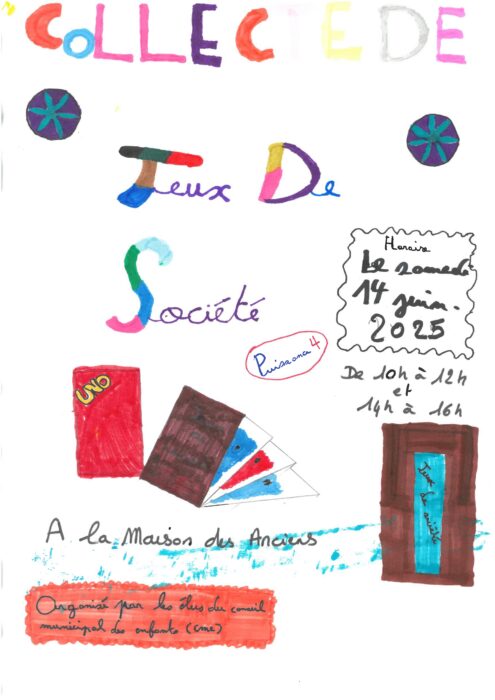 COLLECTE DE
Jeux De
Société
Horaire
Le samedi
14 juin.
2025
Puissance 4
De 10h à 12h
et
14h à 16h
UNO
Jeux de société
A la Maison des Anciens
Organisé par les élus du conseil
municipal des enfants (cme)